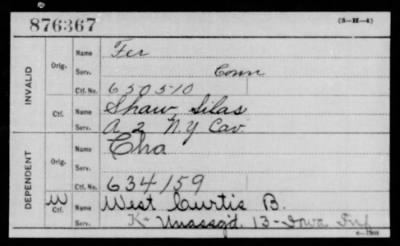 876367
(3-H-4)
INVALID
Orig.
Name Fer
Serv. Conn
Ctf. No. 650510
Ctf.
Name Shaw, Silas
Serv. A 2 N.Y Cav.
DEPENDENT
Orig.
Name Cha
Serv.
Ctf. No. 634159
W Ctf.
Name West Curtis B.
Serv. K- Unassg'd. 13-Iowa Inf